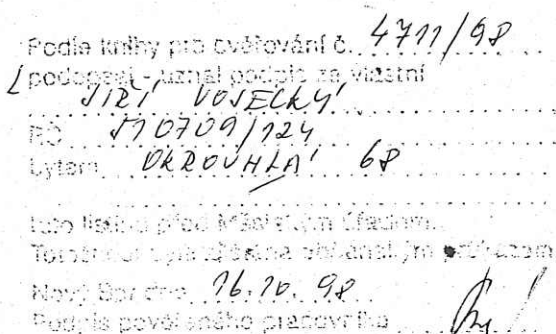 Podle knihy pro ověřování č. 4711/98
podepsal - uznal podpis za vlastní
JIŘÍ VOSECKÝ
RČ 510709/124
bytem OKROUHLÁ 68
tuto listinu před Městským úřadem
Totožnost občanským průkazem
Nový Bor dne 16.10.98
Podpis pověřeného pracovníka